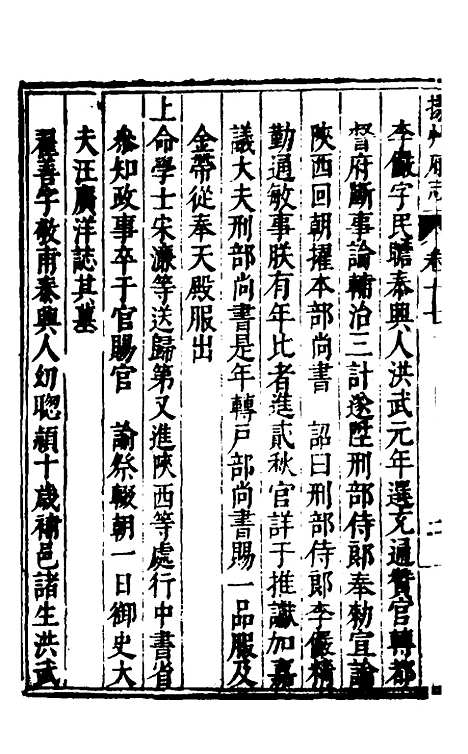 揚州府志 卷十七
李儼字民瞻泰興人洪武元年選充通贊官轉都
督府斷事論輔治三計遂陞刑部侍郎奉勑宣諭
陝西回朝擢本部尚書 詔曰刑部侍郎李儼精
勤通敏事朕有年比者進貳秋官詳于推讞加嘉
議大夫刑部尚書是年轉戶部尚書賜一品服及
金帶從奉天殿服出
上命學士宋濂等送歸第又進陝西等處行中書省
叅知政事卒于官賜官 諭祭輟朝一日御史大
夫汪廣洋誌其墓
翟善字敬甫泰興人幼聰頴十歲補邑諸生洪武